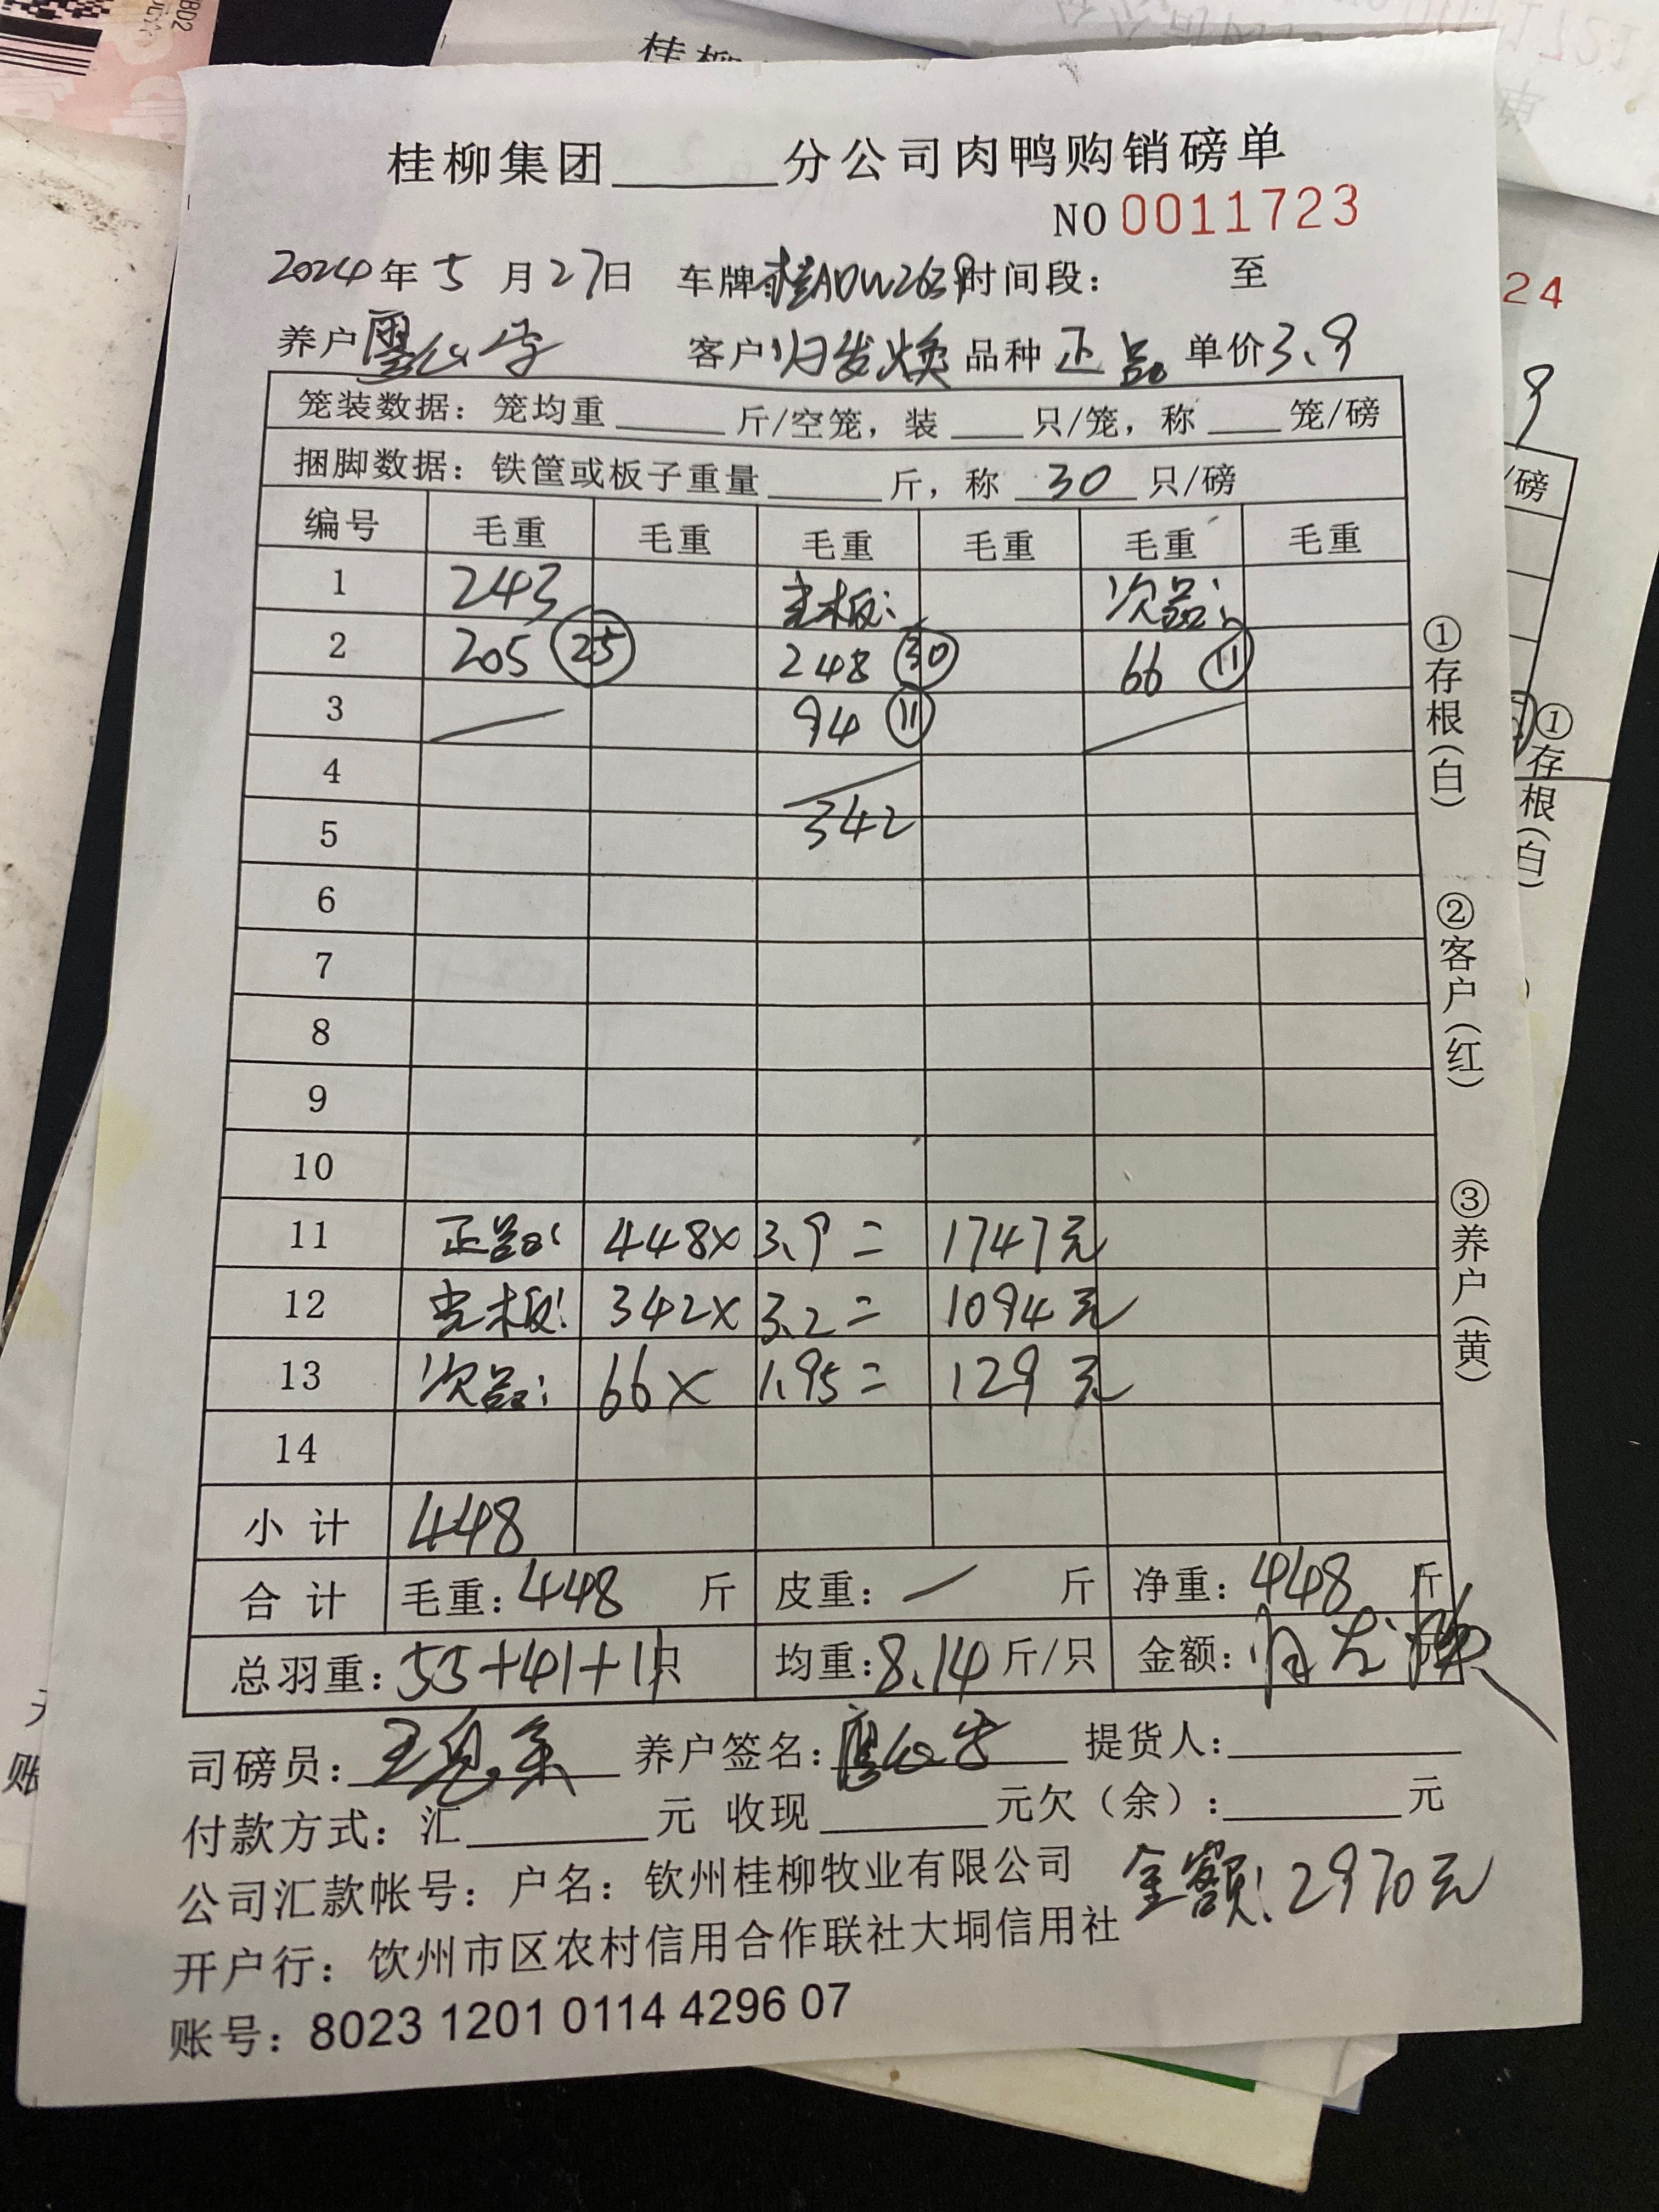 桂柳集团______分公司肉鸭购销磅单
NO 0011723
2024年5月27日 车牌 桂ADW2639 时间段： 至
养户 客户 归发焕 品种 正品 单价 3.9
笼装数据：笼均重______斤/空笼，装____只/笼，称____笼/磅
捆脚数据：铁筐或板子重量______斤，称 30 只/磅
编号 毛重 毛重 毛重 毛重 毛重 毛重
1 243 光板： 次品：
2 205 ㉕ 248 ㉚ 66 ⑪
3 94 ⑪
4
5 342
6
7
8
9
10
11 正品： 448× 3.9= 1747元
12 光板： 342× 3.2= 1094元
13 次品： 66× 1.95= 129元
14
小计 448
合计 毛重：448 斤 皮重：／ 斤 净重：448 斤
总羽重：55+41+11只 均重：8.14斤/只 金额：归发焕
司磅员： 养户签名： 提货人：
付款方式：汇______元 收现______元欠（余）：______元
公司汇款帐号：户名：钦州桂柳牧业有限公司 金额：2970元
开户行：钦州市区农村信用合作联社大垌信用社
账号：8023 1201 0114 4296 07
①存根（白）
②客户（红）
③养户（黄）
桂柳
24
9
/磅
①存根（白）
账